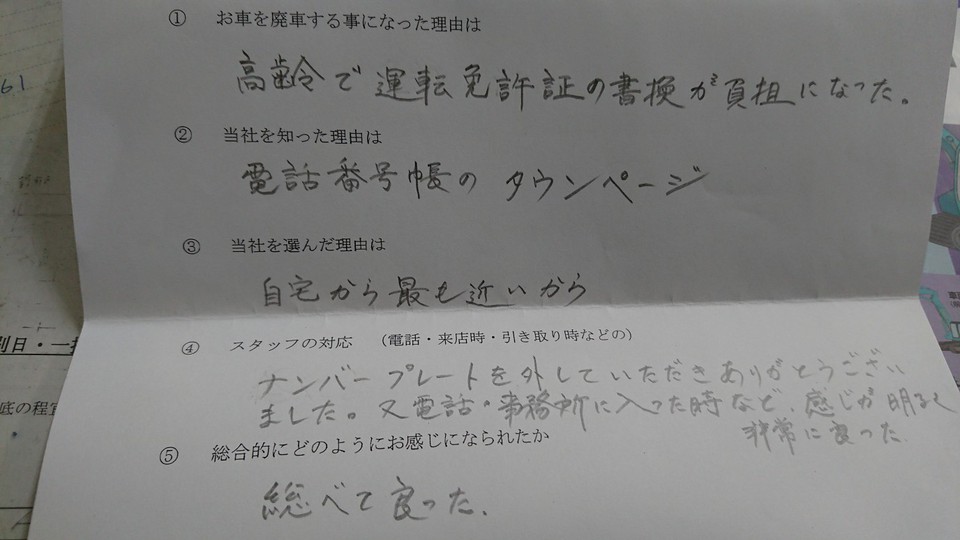 ① お車を廃車する事になった理由は
高齢で運転免許証の書換が負担になった。
② 当社を知った理由は
電話番号帳の タウンページ
③ 当社を選んだ理由は
自宅から最も近いから
④ スタッフの対応 （電話・来店時・引き取り時などの）
ナンバープレートを外していただきありがとうござい
ました。又電話・事務所に入った時など、感じが明るく
非常に良った.
⑤ 総合的にどのようにお感じになられたか
総べて良った.
61
別日・一
底の程宜